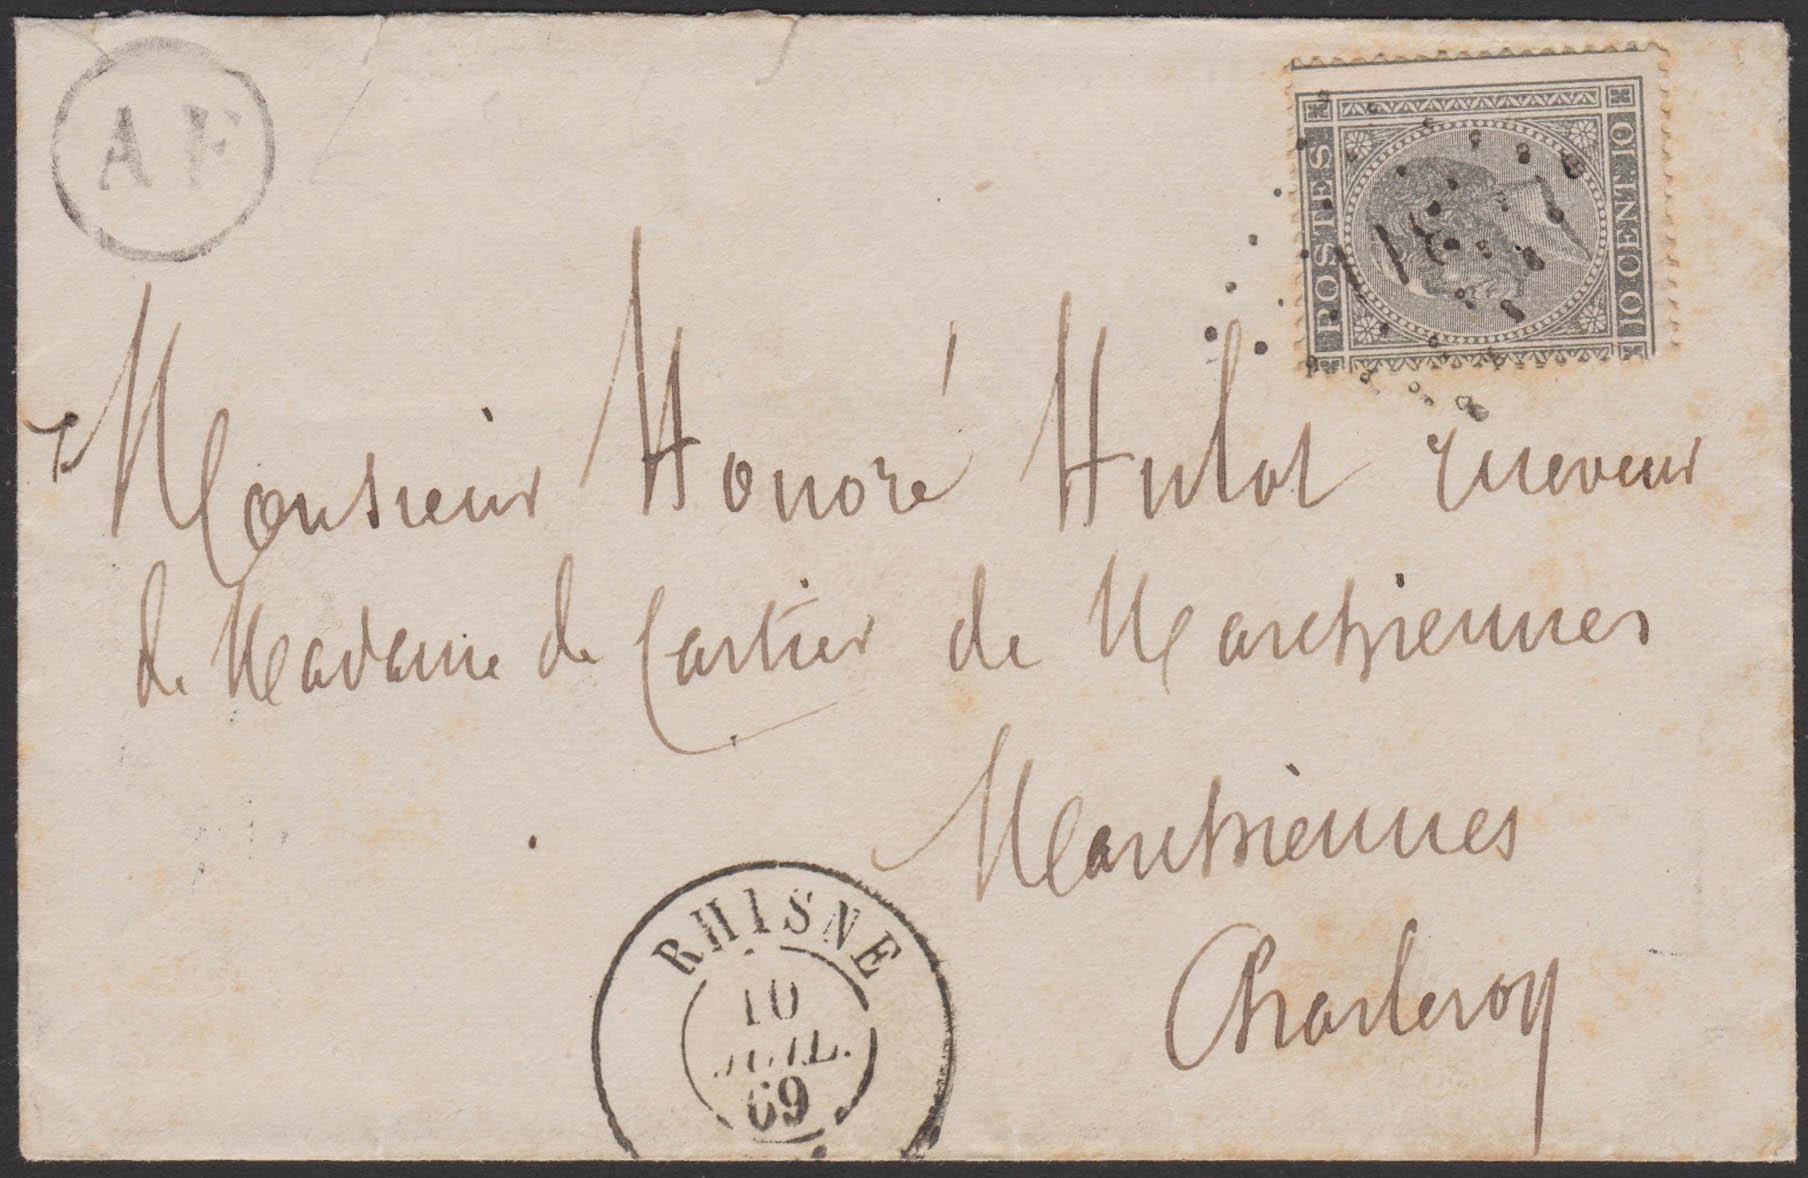 A F
POSTES
10 CENT 10
Monsieur Honoré Hulot receveur
de Madame de Cartier de Marchiennes
Marchiennes
Charleroy
RHISNE
10
JUIL.
69